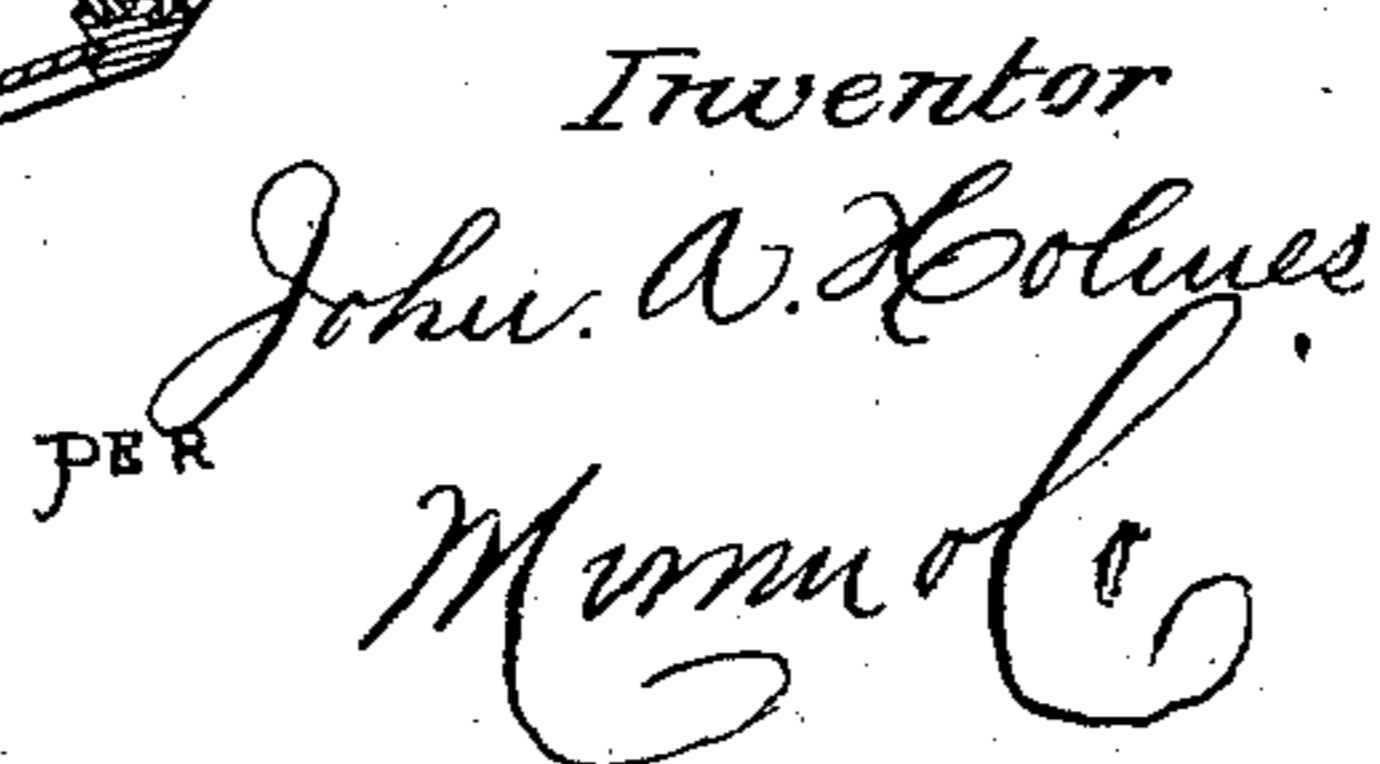 Inventor
John. A. Holmes.
PER
Munn & Co